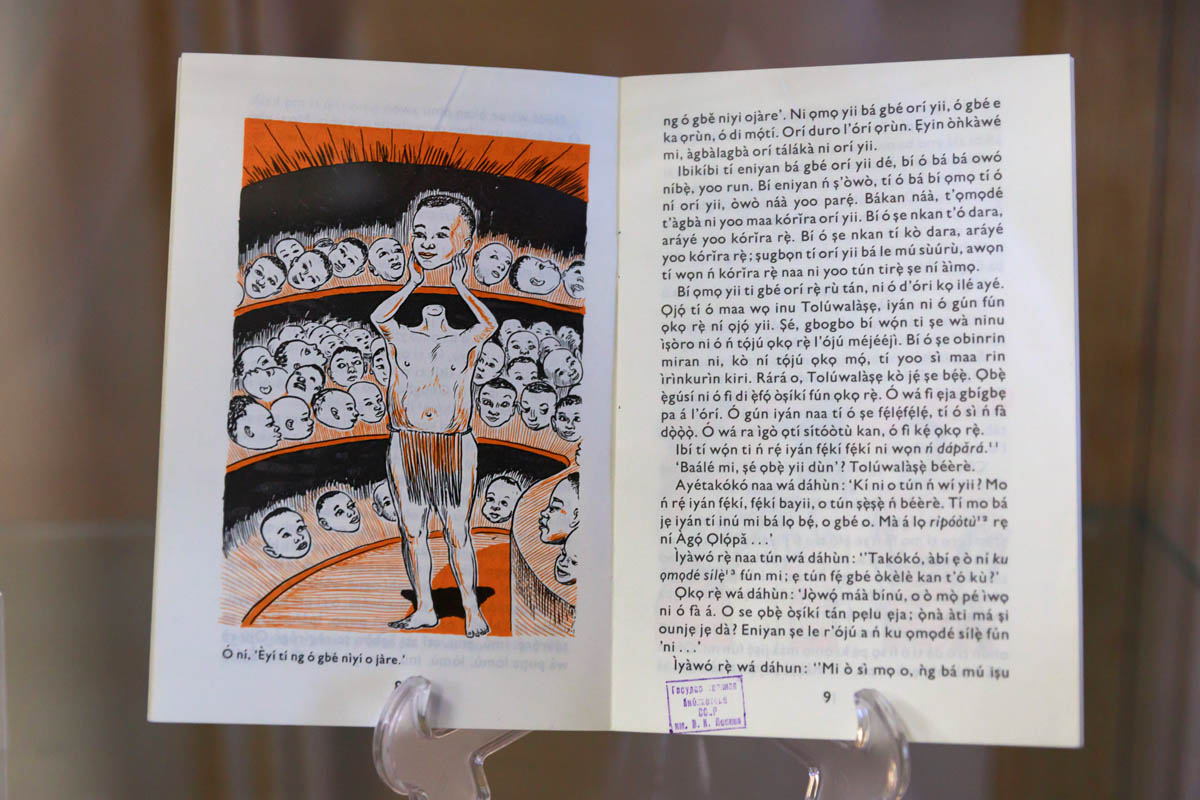 Ó ní, 'Èyí tí ng ó gbé nìyí o jàre.'
ng ó gbě niyi ojàre'. Ni ọmọ yii bá gbé orí yii, ó gbé e
ka ọrùn, ó di mọ́tí. Orí duro l'órí ọrùn. Ẹyin òǹkàwé
mi, àgbàlagbà orí tálákà ni orí yii.
Ibikíbi tí eniyan bá gbé orí yii dé, bí ó bá bá owó
níbẹ̀, yoo run. Bí eniyan ń ṣ'òwò, tí ó bá bí ọmọ tí ó
ní orí yii, òwò náà yoo parẹ́. Bákan náà, t'ọmọdé
t'àgbà ni yoo maa kórǐra orí yii. Bí ó ṣe nkan t'ó dara,
aráyé yoo kórǐra rẹ̀. Bí ó ṣe nkan tí kò dara, aráyé
yoo kórǐra rẹ̀; ṣugbọn tí orí yii bá le mú sùúrù, awọn
tí wọn ń kórǐra rẹ̀ naa ni yoo tún tirẹ̀ ṣe ní àìmọ.
Bí ọmọ yii ti gbé orí rẹ̀ rù tán, ni ó d'óri kọ ilé ayé.
Ọjọ́ tí ó maa wọ inu Tolúwalàṣẹ, iyán ni ó gún fún
ọkọ rẹ̀ ní ọjọ́ yii. Ṣé, gbogbo bí wọ́n ti ṣe wà ninu
ìṣòro ni ó ń tọ́jú ọkọ rẹ̀ l'ójú méjééjì. Bí ó ṣe obinrin
miran ni, kò ní tọ́jú ọkọ mọ́, tí yoo sì maa rin
ìrìnkurìn kiri. Rárá o, Tolúwalàṣẹ kò jẹ́ ṣe bẹ́ẹ̀. Ọbẹ̀
ẹ̀gúsí ni ó fi di ẹ̀fọ́ òṣíkí fún ọkọ rẹ̀. Ó wá fi ẹja gbígbẹ
pa á l'órí. Ó gún iyán naa tí ó ṣe fẹ́lẹ́fẹ́lẹ́, tí ó sì ń fà
dọ̀ọ̀. Ó wá ra ìgò ọtí sítóòtù kan, ó fi kẹ́ ọkọ rẹ̀.
Ibí tí wọ́n ti ń rẹ́ iyán fẹ́kí fẹ́kí ni wọn ń dápǎrá.¹¹
'Baálé mi, ṣé ọbẹ̀ yii dùn'? Tolúwalàṣẹ̀ béèrè.
Ayétakókó naa wá dáhùn: 'Kí ni o tún ń wí yii? Mo
ń rẹ́ iyán fẹ́kí, fẹ́kí bayii, o tún ṣẹ̀ṣẹ̀ ń béèrè. Tí mo bá
jẹ iyán tí inú mi bá lọ bẹ́, o gbé o. Mà á lọ ripóòtù¹² rẹ
ní Àgọ́ Ọlọ́pǎ . . .'
Ìyàwó rẹ̀ naa tún wá dáhùn: ''Takókó, àbí ẹ ò ní ku
ọmọdé sílẹ̀¹³ fún mi; ẹ tún fẹ́ gbé òkèlè kan t'ó kù?'
Ọkọ rẹ̀ wá dáhùn: 'Jọ̀wọ́ máà bínú, o ò mọ̀ pé ìwọ
ni ó fà á. O se ọbẹ̀ òṣíkí tán pẹlu ẹja; ọ̀nà àti má ṣi
ounjẹ jẹ dà? Eniyan ṣe le r'ójú a ń ku ọmọdé sílẹ̀ fún
'ni . . .'
Ìyàwó rẹ̀ wá dáhun: ''Mi ò sì mọ o, ǹg bá mú iṣu
9
СССР
им. В. И. Ленина